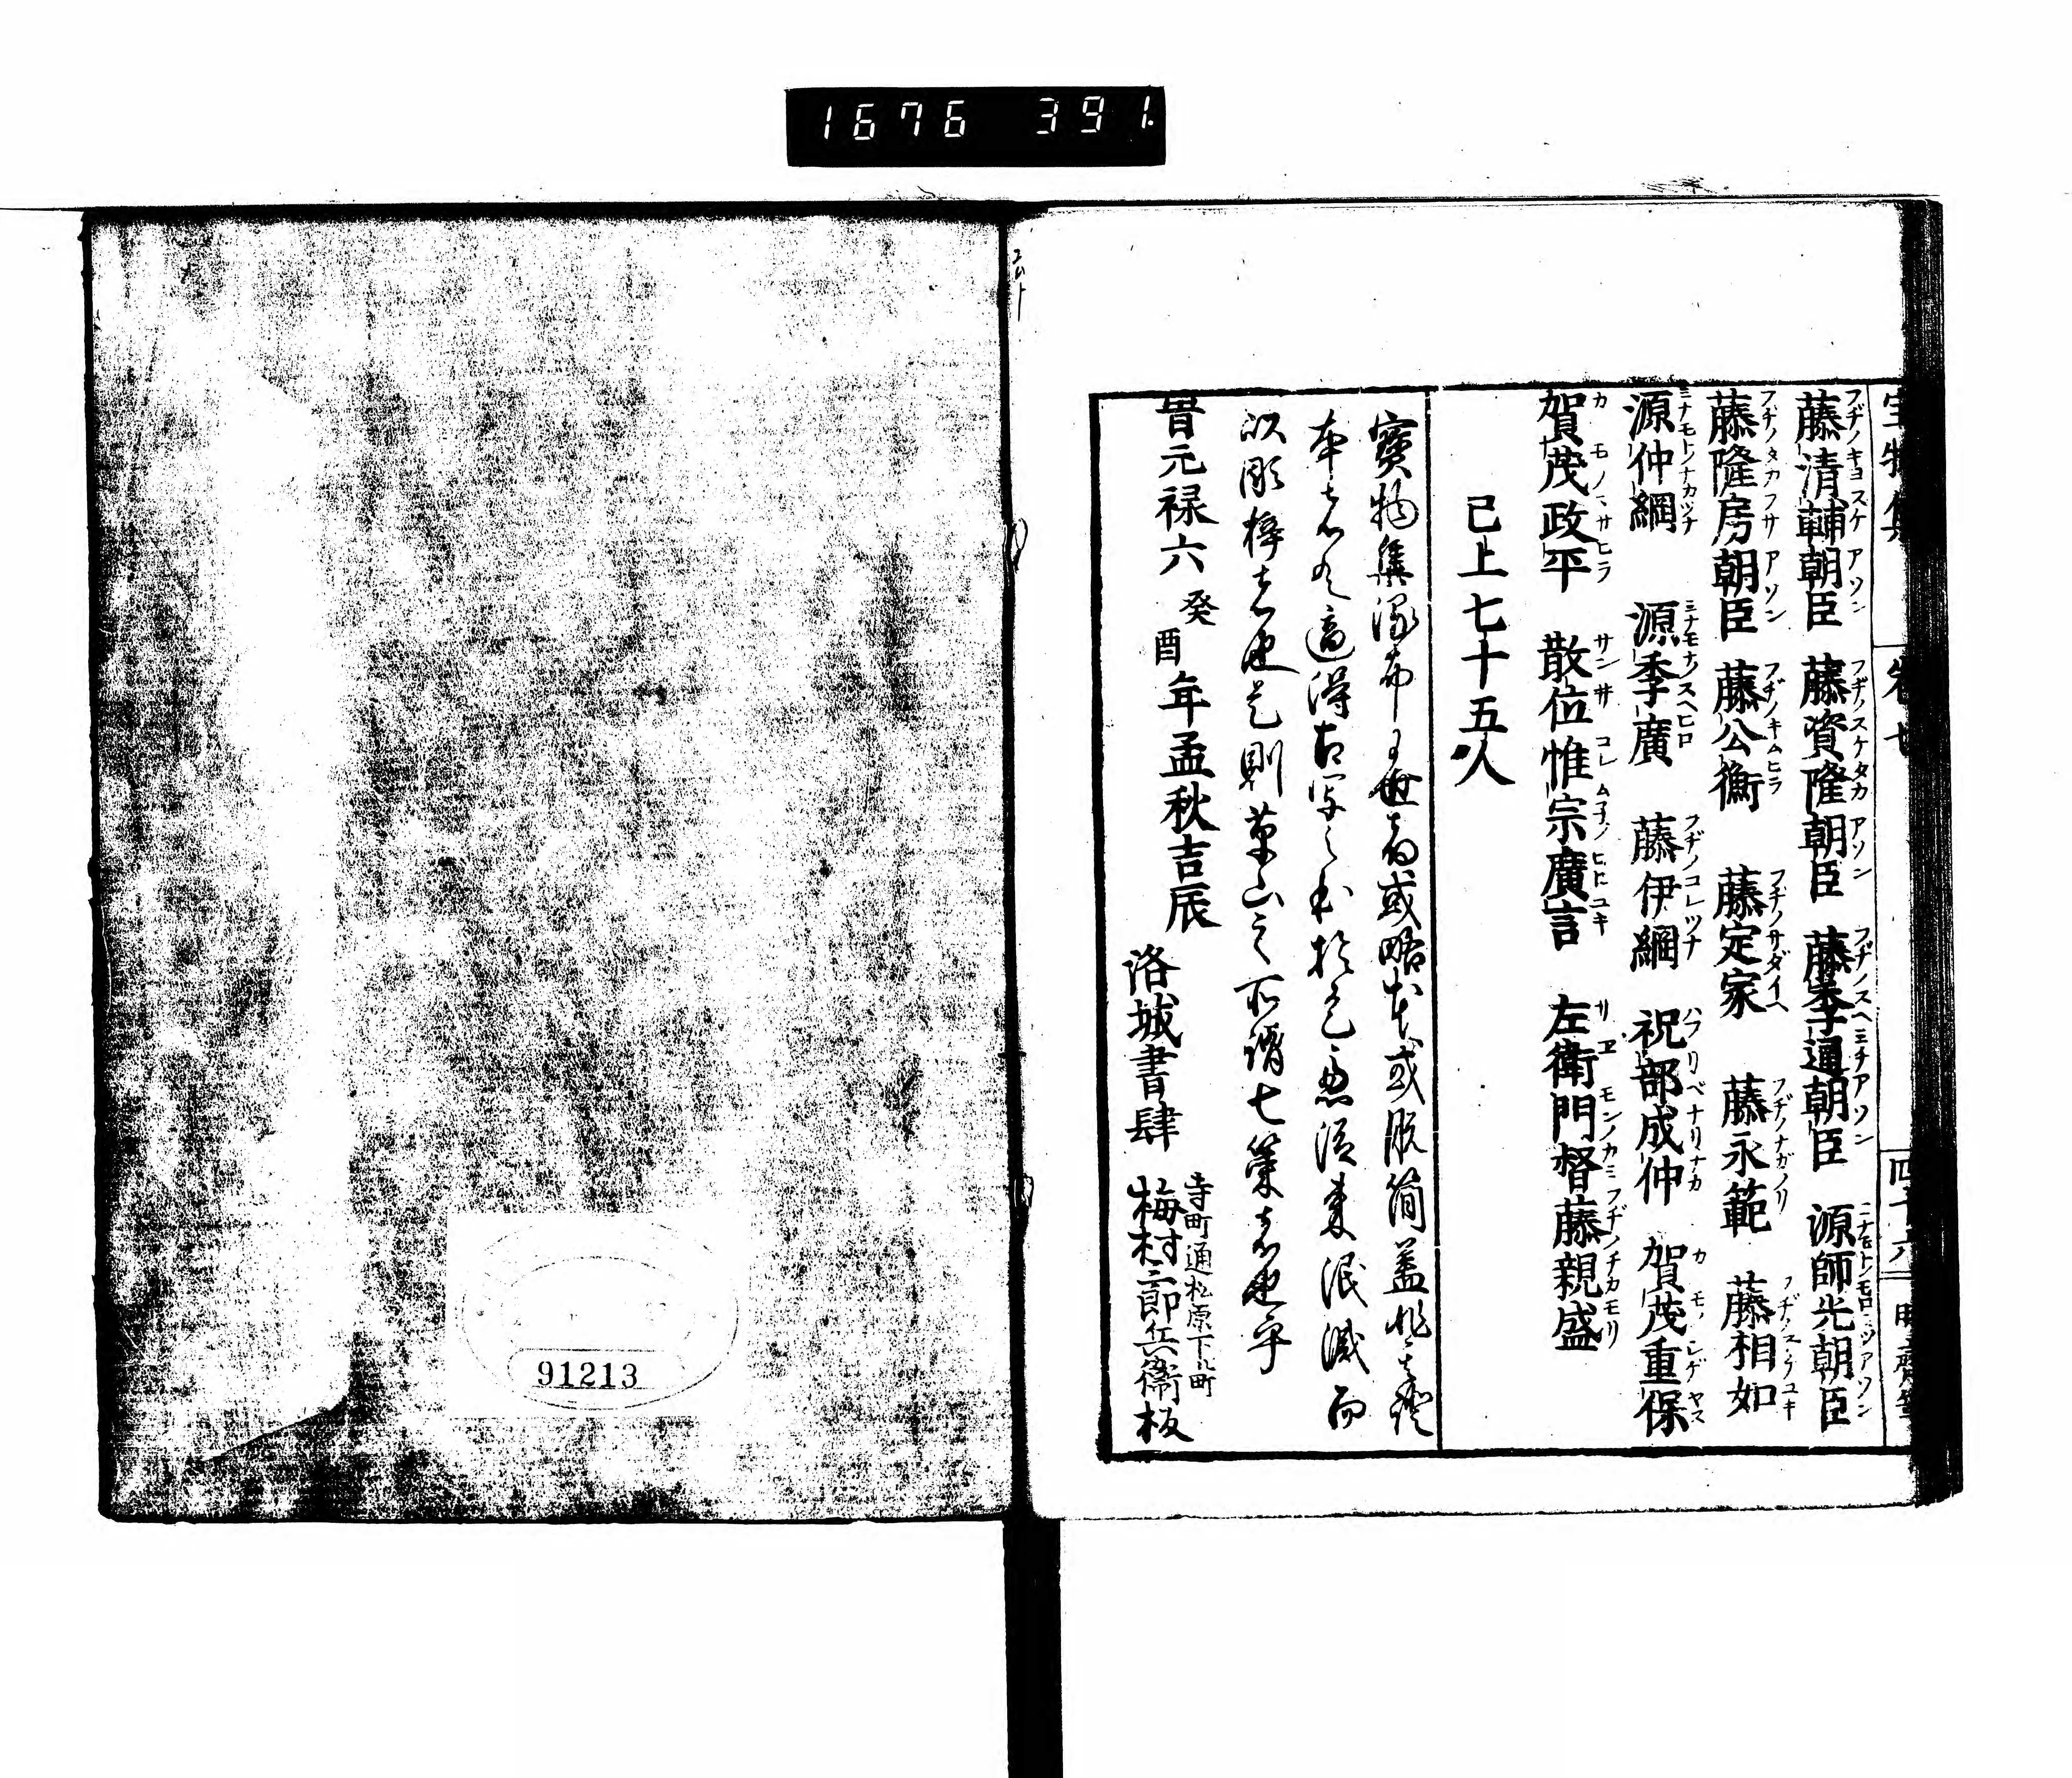 1676 391
藤清輔朝臣 藤資隆朝臣 藤季通朝臣 源師光朝臣
藤隆房朝臣 藤公衡 藤定家 藤永範 藤相如
源仲綱 源季廣 藤伊綱 祝部成仲 賀茂重保
賀茂政平 散位惟宗廣言 左衛門督藤親盛
已上七十五人
寶物集流布于世者或略本或脱簡蓋非證
本者矣適得古写之本於是忽須募泯滅而
以彫梓者也是則草山之所謂七策者也乎
旹元禄六癸酉年孟秋吉辰
洛城書肆 寺町通松原下ル町
梅村三郎兵衛板
91213